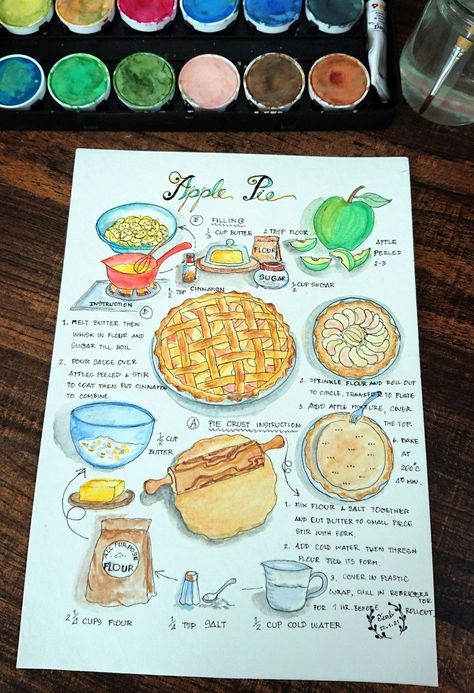 Apple Pie
B FILLING
1/3 CUP BUTTER
2 TBSP FLOUR
FLOUR
SUGAR
1/2 TSP CINNAMON
1/2 CUP SUGAR
APPLE
PEELED
2-3
INSTRUCTION B
1. MELT BUTTER THEN
WHISK IN FLOUR AND
SUGAR TILL BOIL.
2. POUR SAUCE OVER
APPLES PEELED & STIR
TO COAT THEN PUT CINNAMON
TO COMBINE.
4. SPRINKLE FLOUR AND ROLL OUT
TO CIRCLE, TRANSFER TO PLATE
5. ADD APPLE MIXTURE, COVER
THE TOP.
6. BAKE
AT
200°C
45 MIN.
A PIE CRUST INSTRUCTION
1/2 CUP
BUTTER
1. MIX FLOUR & SALT TOGETHER
AND CUT BUTTER TO SMALL PIECE
STIR WITH FORK.
2. ADD COLD WATER
FLOUR ITS FORM.
3. COVER IN PLASTIC
WRAP, CHILL IN
FOR 1 HR. BEFORE ROLLOUT
ALL-PURPOSE
FLOUR
2 1/4 CUPS FLOUR
1/4 TSP SALT
1/2 CUP COLD WATER